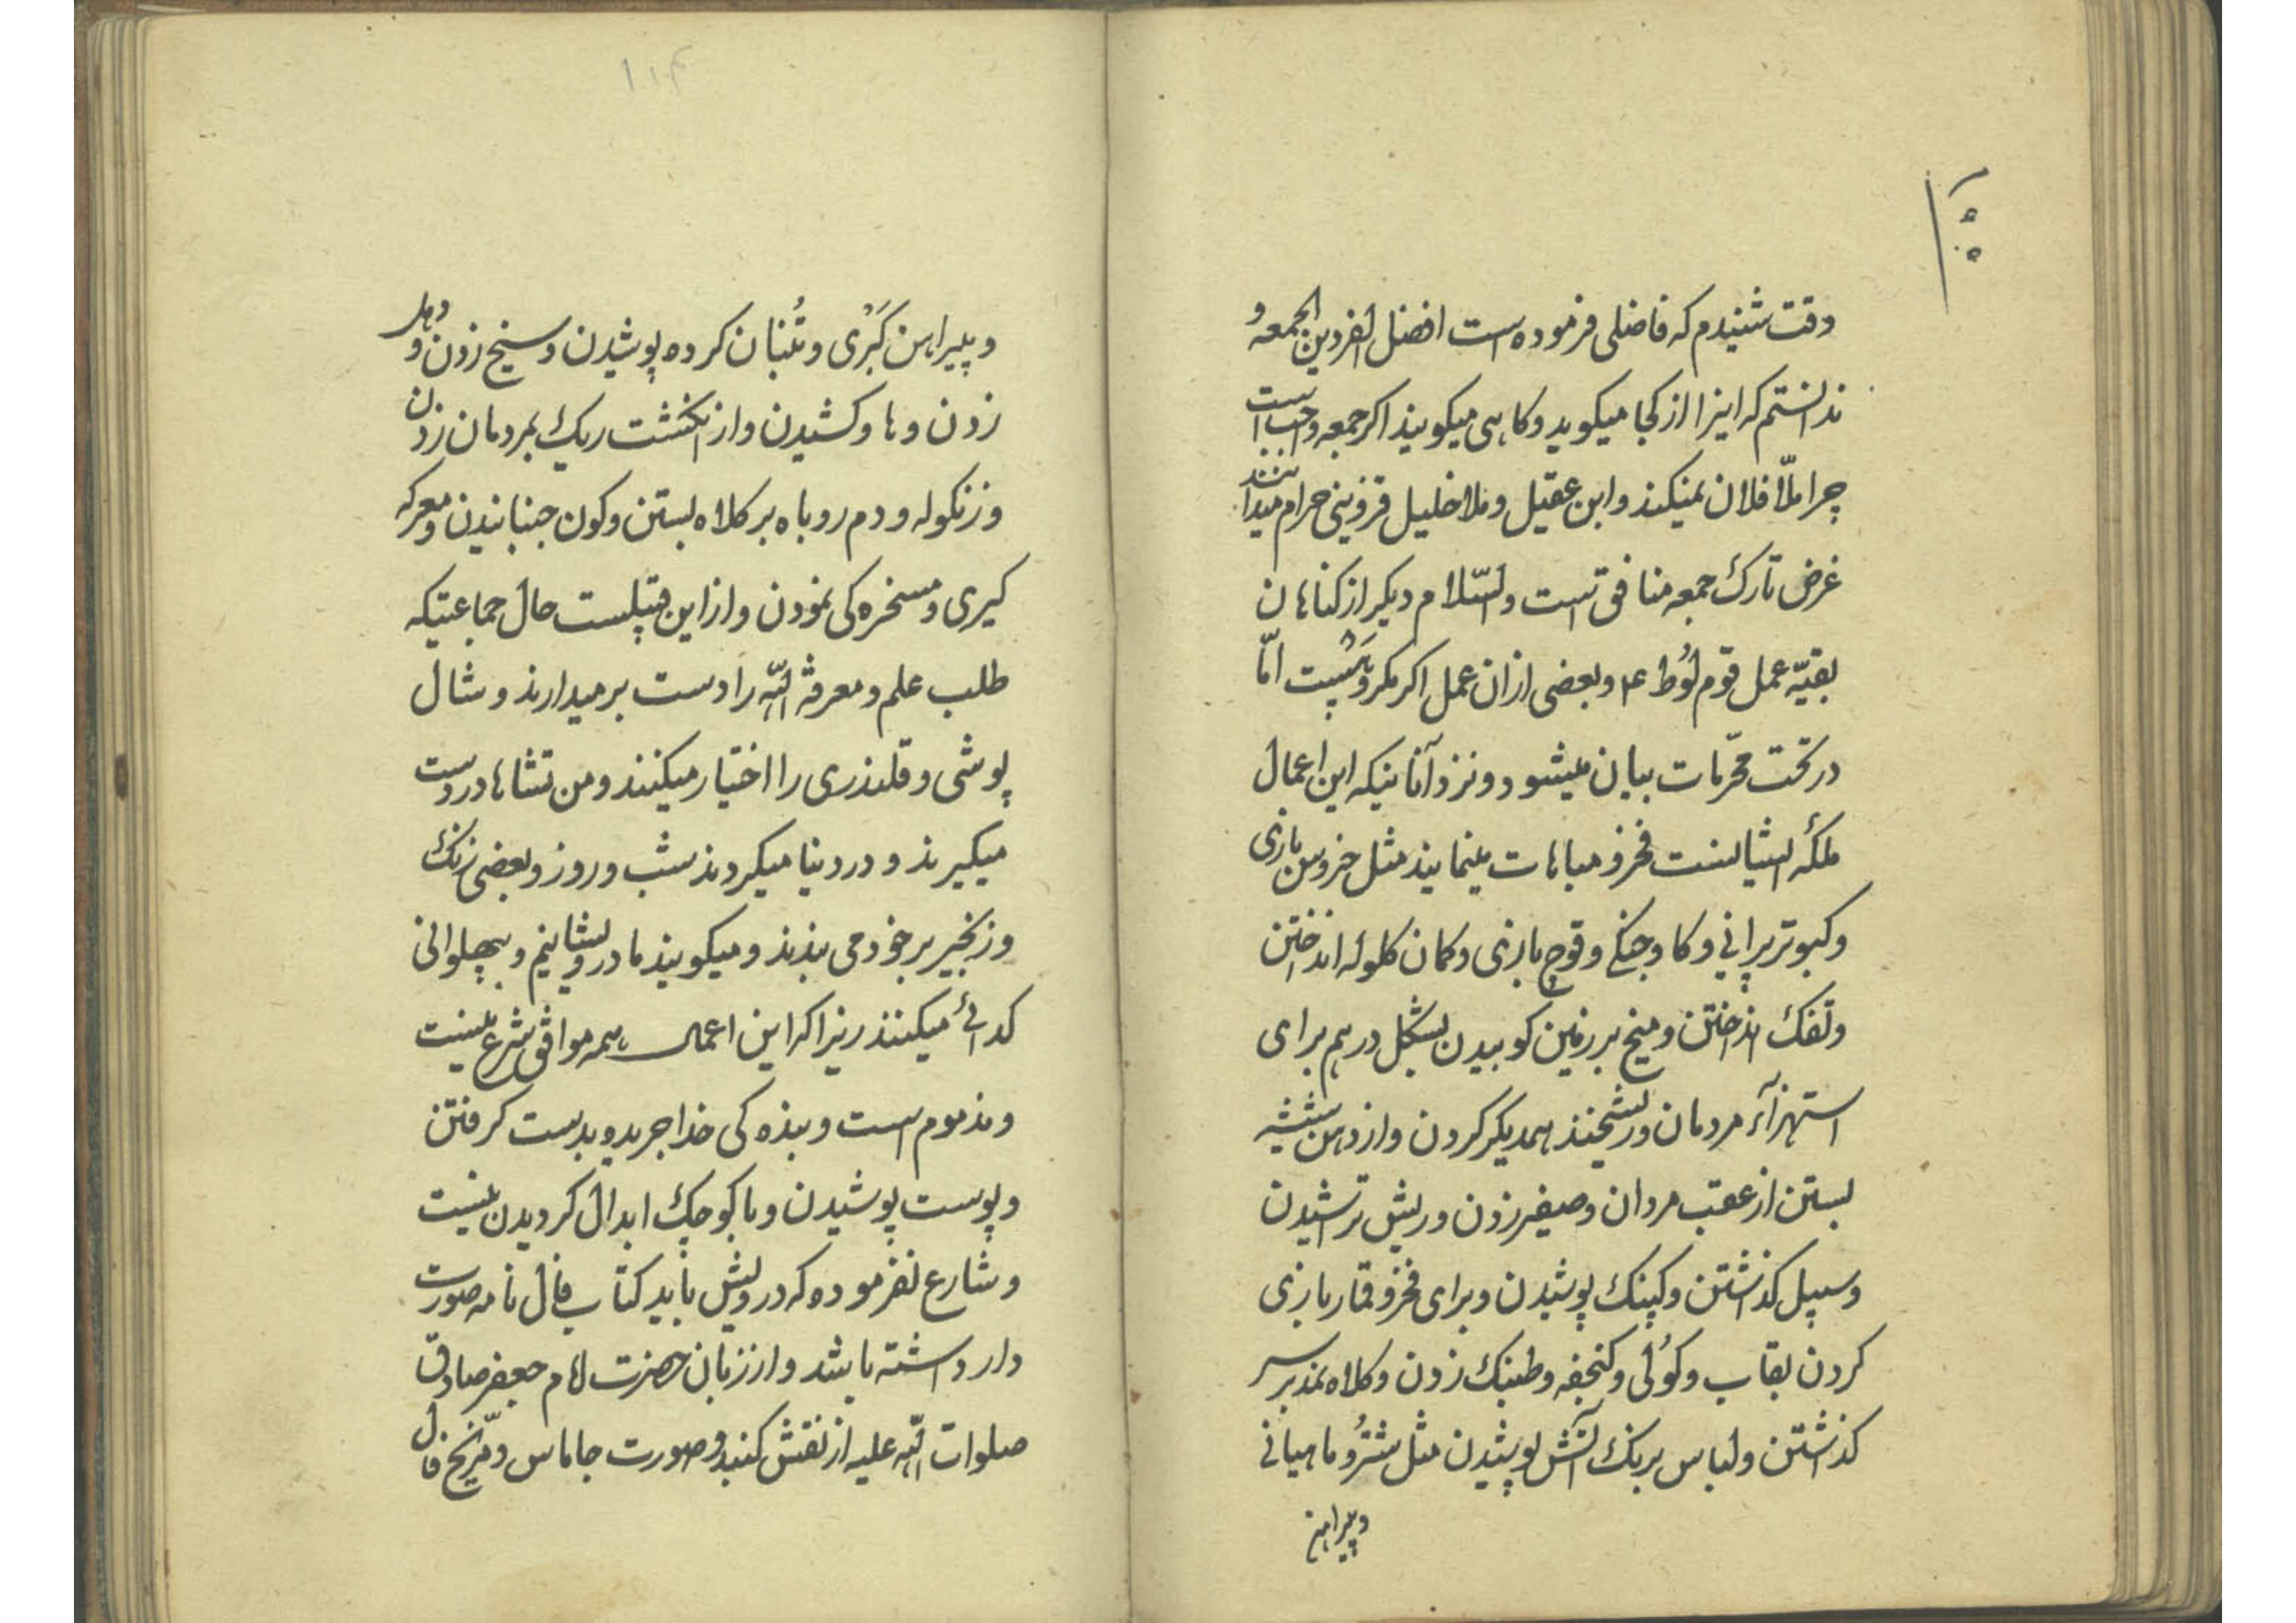 وقت شنیدم که فاضلی فرموده است افضل الفردین الجمعه و
ندانستم که اینرا از کجا میکوید و کاهی میکویند اکر جمعه واجب است
چرا ملّا فلان نمیکند و ابن عقیل و ملا خلیل قزوینی حرام میدانند
غرض تارک جمعه منافق است والسّلام دیکر از کناهان
بقیّه عمل قوم لوُط ۴ و بعضی ازان عمل اکر مکروهست امّا
در تحت محّرمات بیان میشود و نزد آنانیکه این اعمال
ملکهٔ ایشانست فخر و مباهات مینمایند مثل خروس بازی
و کبوتر پرانی و کاو جنکی و قوچ بازی و کمان کلوله انداختن
و تفک انداختن و میخ بر زمین کوبیدن بشکل درهم برای
استهزآء مردمان و ریشخند همدیکر کردن و از دهن شیشه
بستن از عقب مردان و صفیر زدن و ریش تراشیدن
و سبیل کذاشتن و کپنک پوشیدن و برای فخر و قمار بازی
کردن بقاب و کوُلی و کنجفه و طنبک زدن و کلاه نمد بر سر
کذاشتن و لباس برنک آتش پوشیدن مثل شتُرو ماهیانی
و پیراهن
۱۱۴
و پیراهن کَبَرْی و تُنبان کرده پوشیدن و سنج زدن و دهل
زدن و هاو کشیدن و از انکشت ریک بمردمان زدن
و زنکوله و دم روباه بر کلاه بستن و کون جنبانیدن و معرکه
کیری و مسخره کی نمودن و از این قبیلست حال جماعتیکه
طلب علم و معرفة الله را دست برمیدارند و شال
پوشی و قلندری را اختیار میکنند و من تشاها در دست
میکیرند و در دنیا میکردند شب و روز و بعضی زنک
و زنجیر بر خود می بندند و میکویند ما درویشانیم و بپهلوانی
کدائی میکنند زیرا که این اعمال همه موافق شرع نیست
و مذموم است و بنده کی خدا جریده بدست کرفتن
و پوست پوشیدن و با کوچک ابدال کردیدن نیست
و شارع نفرموده که درویش باید کتاب فال نامه صورت
دار داشته باشد و از زبان حضرت امام جعفر صادق
صلوات الله علیه از نقش کنبد و صورت جاماس و مرّیخ فال